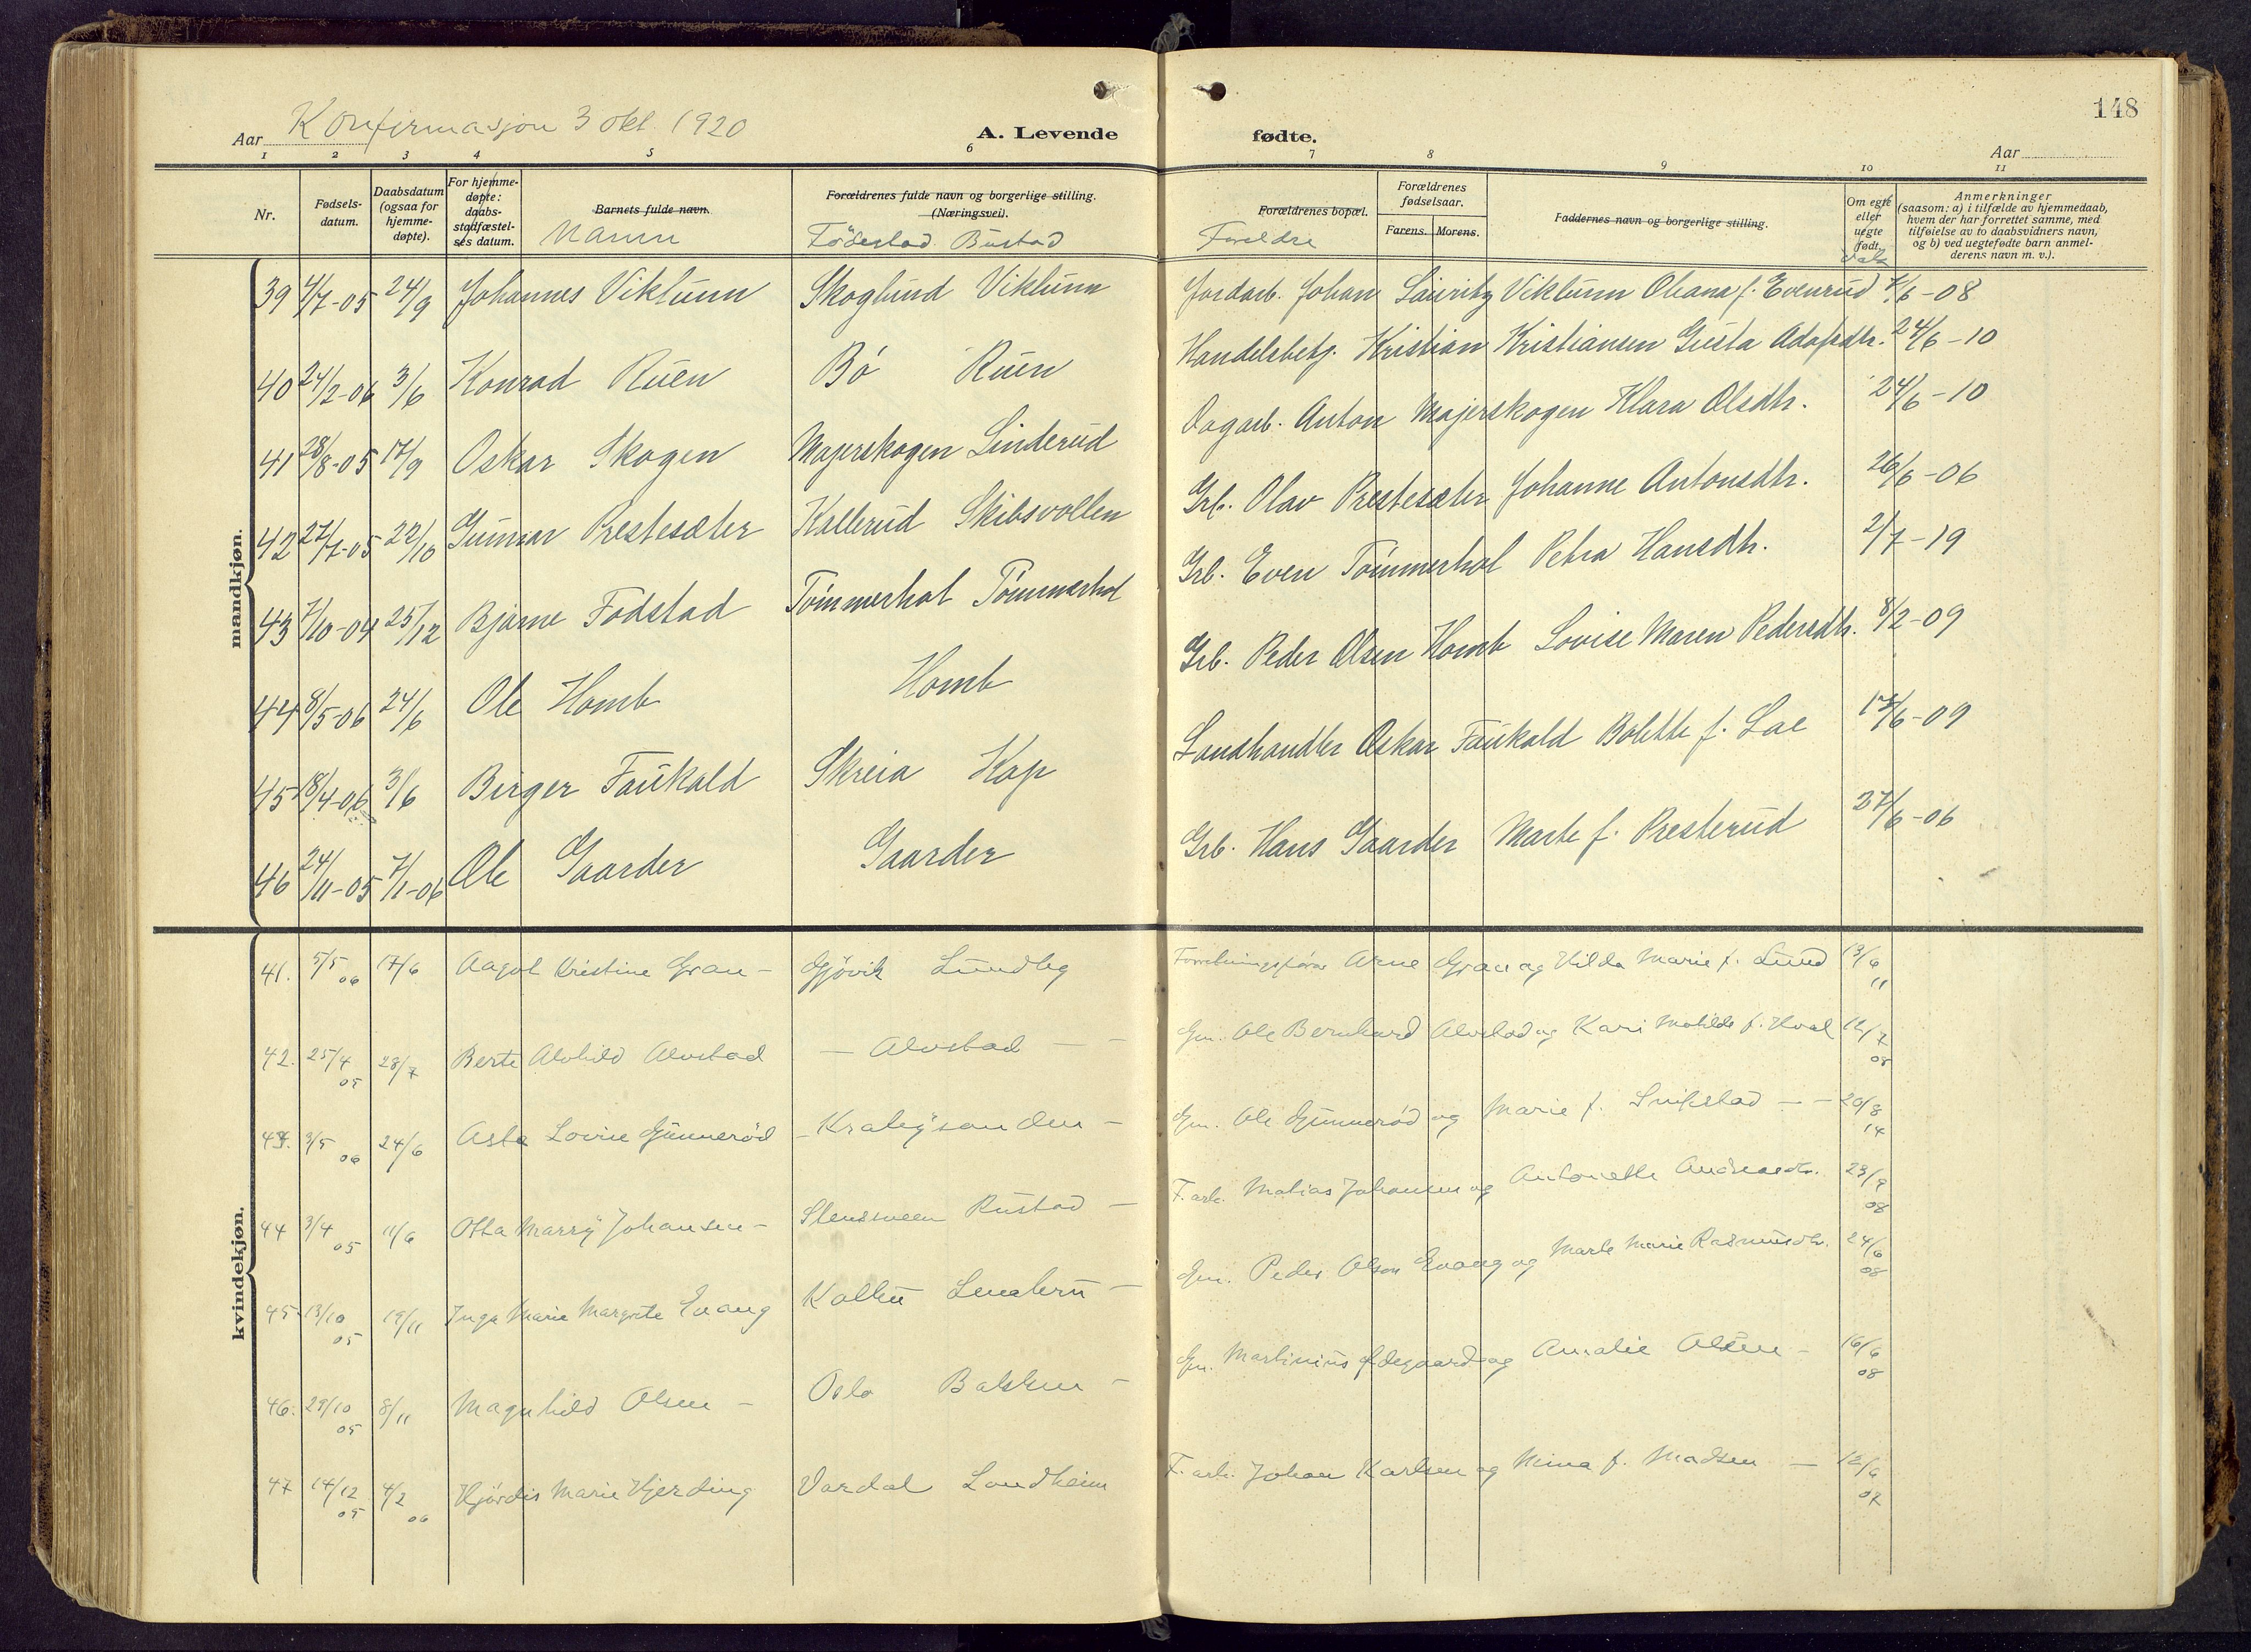 148
Aar Konfirmasjon 3 okt 1920
A. Levende fødte.
Aar
1 2 3 4 5 6 7 8 9 10 11
Nr.
Fødselsdatum.
Daabsdatum (ogsaa for hjemmedøpte).
For hjemmedøpte: daabsstadfæstelses datum.
Barnets fulde navn.
Namn
Forældrenes fulde navn og borgerlige stilling. (Næringsvei).
Fødestad Bustad
Forældrenes bopæl.
Foreldre
Forældrenes fødselsaar.
Farens. Morens.
Faddernes navn og borgerlige stilling.
Om egte eller uegte født.
Anmerkninger (saasom: a) i tilfælde av hjemmedaab, hvem der har forrettet samme, med tilføielse av to daabsvidners navn, og b) ved uegtefødte barn anmelderens navn m. v.).
mandkjøn.
39 4/7-05 24/9 Johannes Viklunn Skoglund Viklunn Jordarb. Johan Lauritz Viklunn Oleana f. Evenrud /6-08
40 24/2-06 3/6 Konrad Ruen Bø Ruen Handelsbetj. Kristian Kristiansen Gusta Adolfsdtr. 24/6-10
41 28/8-05 17/9 Oskar Skogen Majerskogen Linderud Dagarb. Anton Majerskogen Klara Olsdtr. 24/6-10
42 27/7-05 22/10 Gunnar Prestesæter Kallerud Skibsvollen Grb. Olav Prestesæter Johanne Antonsdtr. 26/6-06
43 7/10-04 25/12 Bjarne Fodstad Tømmerhol Tømmerhol Grb. Even Tømmerhol Petra Hansdtr. 2/7-19
44 8/5-06 24/6 Ole Homb Homb Grb. Peder Olsen Homb Lovise Maren Pedersdtr. 8/2-09
45 18/4-06 3/6 Birger Faukald Skreia Kap Landhandler Oskar Faukald Bolette f. Lae /6-09
46 24/11-05 7/1-06 Ole Gaarder Gaarder Grb. Hans Gaarder Marte f. Presterud 27/6-06
kvindekjøn.
41. 5/5 06 17/6 Aagot Kristine Gran - Gjøvik Lundby Forretningsfører Arne Gran og Hilda Marie f. Lund 13/6 11
42. 25/4 05 28/7 Berte Alvhild Alvstad - Alvstad - - Gm. Ole Bernhard Alvstad og Kari Matilde f. Hval 12/7 08
43. 3/5 06 24/6 Asta Lovise Gunnerød - Krabysanden - Gm. Ole Gunnerød og Marie f. - - 20/8 14
44 3/4 05 11/6 Otta Marry Johansen - Stensveen Rustad - F. arb. Matias Johansen og Antonette Andreasdtr. 23/7 08
45. 13/10 05 19/11 Inga Marie Margrete Evang Kolbu Lenabru - Gm. Peder Olsen Evang og Marte Marie Rasmusdtr. 24/6 08
46. 29/10 05 8/11 Magnhild Olsen - Oslo Bakken - Gm. Martinius Ødegaard og Amalie Olsen - 16/6 08
47 14/12 05 4/2 06 Hjørdis Marie Hjerding Vardal Londheim F. arb. Johan Karlsen og Mina f. Madsen - 12/6 07